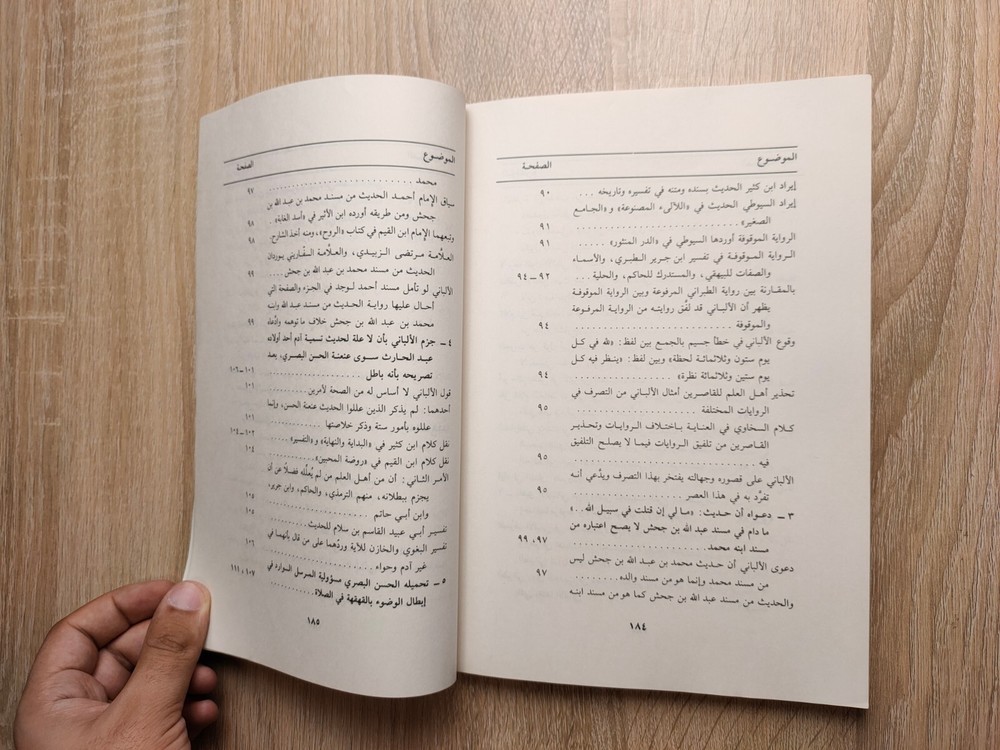 الموضـوع الصفحـة
إيراد ابن كثير الحديث بسنده ومتنه في تفسيره وتاريخه ... ٩٠
إيراد السيوطي الحديث في «اللآلىء المصنوعة» و«الجامـع
الصغير» ........................ ٩١
الرواية الموقوفة أوردها السيوطي في «الدر المنثور» ..... ٩١
الـرواية المـوقوفـة في تفسير ابن جرير الطبـري، والأسمـاء
والصفات للبيهقي، والمستدرك للحاكم، والحلية ... ٩٢ ــ ٩٤
بالمقـارنة بين رواية الطبراني المرفوعة وبين الرواية الموقوفـة
يظهر أن الألبـاني قد لفَّق روايتـه من الروايـة المرفـوعة
والموقوفة ........................ ٩٤
وقوع الألباني في خطأ جسيم بالجمـع بين لفظ: «لله في كـل
يوم ستون وثلاثمائة لحظة» وبين لفظ: «ينـظر فيه كـل
يوم ستين وثلاثمائة نظرة» ................ ٩٤
تحذير أهـل العلم للقـاصرين أمثال الألبـاني من التصرف في
الروايات المختلفة .................... ٩٥
كـلام السخاوي في العناية باختـلاف الـروايـات وتحـذيـر
القـاصرين من تلفيق الـروايات فيما لا يصلـح التلفيق
فيه ........................ ٩٥
الألباني على قصوره وجهالته يفتخر بهذا التصرف ويدَّعي أنـه
تفرَّد به في هذا العصر .................. ٩٥
٣ ــ دعـواه أن حديـث: «مـا لي إن قتلت في سبيـل الله ..»
ما دام في مسند عبد الله بن جحش لا يصـح اعتباره من
مسند ابنه محمد .................. ٩٧، ٩٩
دعوى الألباني أن حديث محمـد بن عبد الله بن جحش ليس
من مسند محمد وإنما هو من مسند والده ........ ٩٧
والحديث من مسند عبد الله بن جحش كما هو من مسند ابنـه
١٨٤
الموضـوع الصفحة
محمد ........................ ٩٧
سياق الإمام أحمـد الحديث من مسنـد محمد بن عبد الله بن
جحش ومن طريقه أورده ابن الأثير في «أسد الغابة» .. ٩٨
وتبعهما الإمام ابن القيم في كتاب «الروح»، ومنه أخذ الشارح. ٩٨
العـلاَّمـة مـرتضى الـزبيـدي، والعـلاَّمة السفَّـاريني يـوردان
الحديث من مسند محمد بن عبد الله بن جحش .... ٩٩
الألباني لو تأمل مسند أحمد لـوجد في الجزء والصفحة التي
أحـال عليها روايـة الحديـث من مسند عبد الله وابنه
محمـد بن عبد الله بن جحش خلاف ما توهمه وادَّعاه ٩٩
٤ ــ جزم الألباني بأن لا علة لحديث تسمية آدم أحد أولاده
عبـد الحارث سـوى عنعنـة الحسن البصري، بعـد
تصريحه بأنه باطل ................ ١٠١ــ١٠٦
قول الألباني لا أساس له من الصحة لأمرين ........ ١٠١
أحدهما: لم يذكر الذين عللوا الحديث عنعنة الحسن، وإنما
عللوه بأمور ستة وذكر خلاصتها .......... ١٠١
نقل كلام ابن كثير في «البداية والنهاية» و«التفسير» ... ١٠٢ــ١٠٤
نقل كلام ابن القيم في «روضة المحبين» ........ ١٠٤
الأمـر الثـاني: أن من أهـل العلم من لم يُعلِّله فضـلاً عن أن
يجزم ببطلانـه، منهم الترمذي، والحاكم، وابن جرير،
وابن أبـي حاتم .................... ١٠٥
تفسيـر أبـي عبيد القاسم بن سلام للحديث ........ ١٠٥
تفسير البغوي والخازن للآية وردّهما على من قال بأنهما في
غير آدم وحواء .................... ١٠٦
٥ ــ تحميله الحسن البصري مسؤولية المرسل الـوارد في
إبطال الوضوء بالقهقهة في الصلاة ........ ١٠٧، ١١١
١٨٥